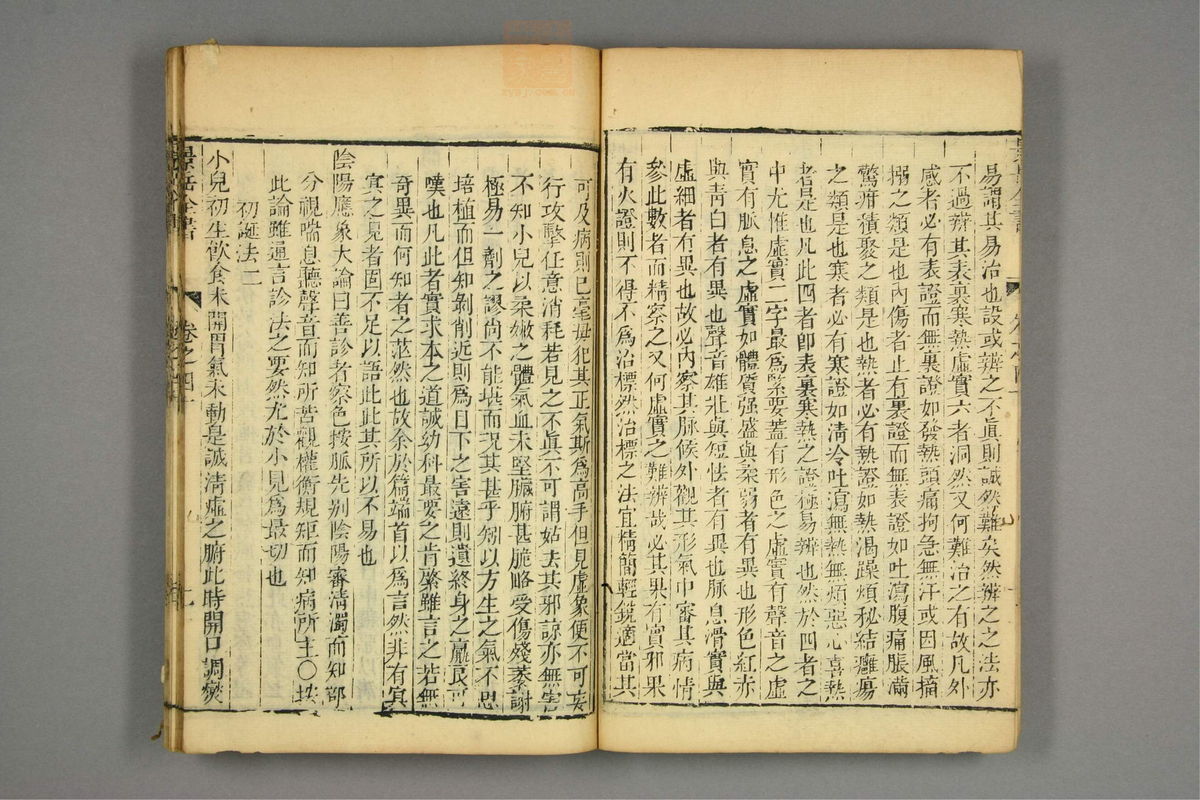 易謂其易治也設或辨之不眞則誠然難矣然辨之之法亦
不過辨其表裏寒熱虛實六者洞然又何難治之有故凡外
感者必有表證而無裏證如發熱頭痛拘急無汗或因風搐
搦之類是也內傷者止有裏證而無表證如吐瀉腹痛脹滿
驚疳積聚之類是也熱者必有熱證如熱渴躁煩秘結癰瘍
之類是也寒者必有寒證如淸冷吐瀉無熱無煩惡心喜熱
者是也凡此四者卽表裏寒熱之證極易辨也然於四者之
中尤惟虛實二字最爲緊要蓋有形色之虛實有聲音之虛
實有脉息之虛實如體質强盛與柔弱者有異也形色紅赤
與靑白者有異也聲音雄壯與短怯者有異也脉息滑實與
虛細者有異也故必內察其脉候外觀其形氣中審其病情
參此數者而精察之又何虛實之難辨哉必其果有實邪果
有火證則不得不爲治標然治標之法宜精簡輕銳適當其
可及病則已毫毋犯其正氣斯爲高手但見虛象便不可妄
行攻擊任意消耗若見之不眞不可謂姑去其邪諒亦無害
不知小兒以柔嫩之體氣血未堅臟腑甚脆略受傷殘萎謝
極易一劑之謬尙不能堪而况其甚乎矧以方生之氣不思
培植而但知剝削近則爲目下之害遠則遺終身之羸良可
嘆也凡此者實求本之道誠幼科最要之肯綮雖言之若無
奇異而何知者之茫然也故余於篇端首以爲言然非有冥
冥之見者固不足以語此此其所以不易也
陰陽應象大論曰善診者察色按脈先別陰陽審清濁而知部
分視喘息聽聲音而知所苦觀權衡規矩而知病所主○按
此論雖通言診法之要然尤於小兒爲最切也
初誕法二
小兒初生飮食未開胃氣未動是誠淸虛之腑此時開口調燮
景岳全書
卷之四十